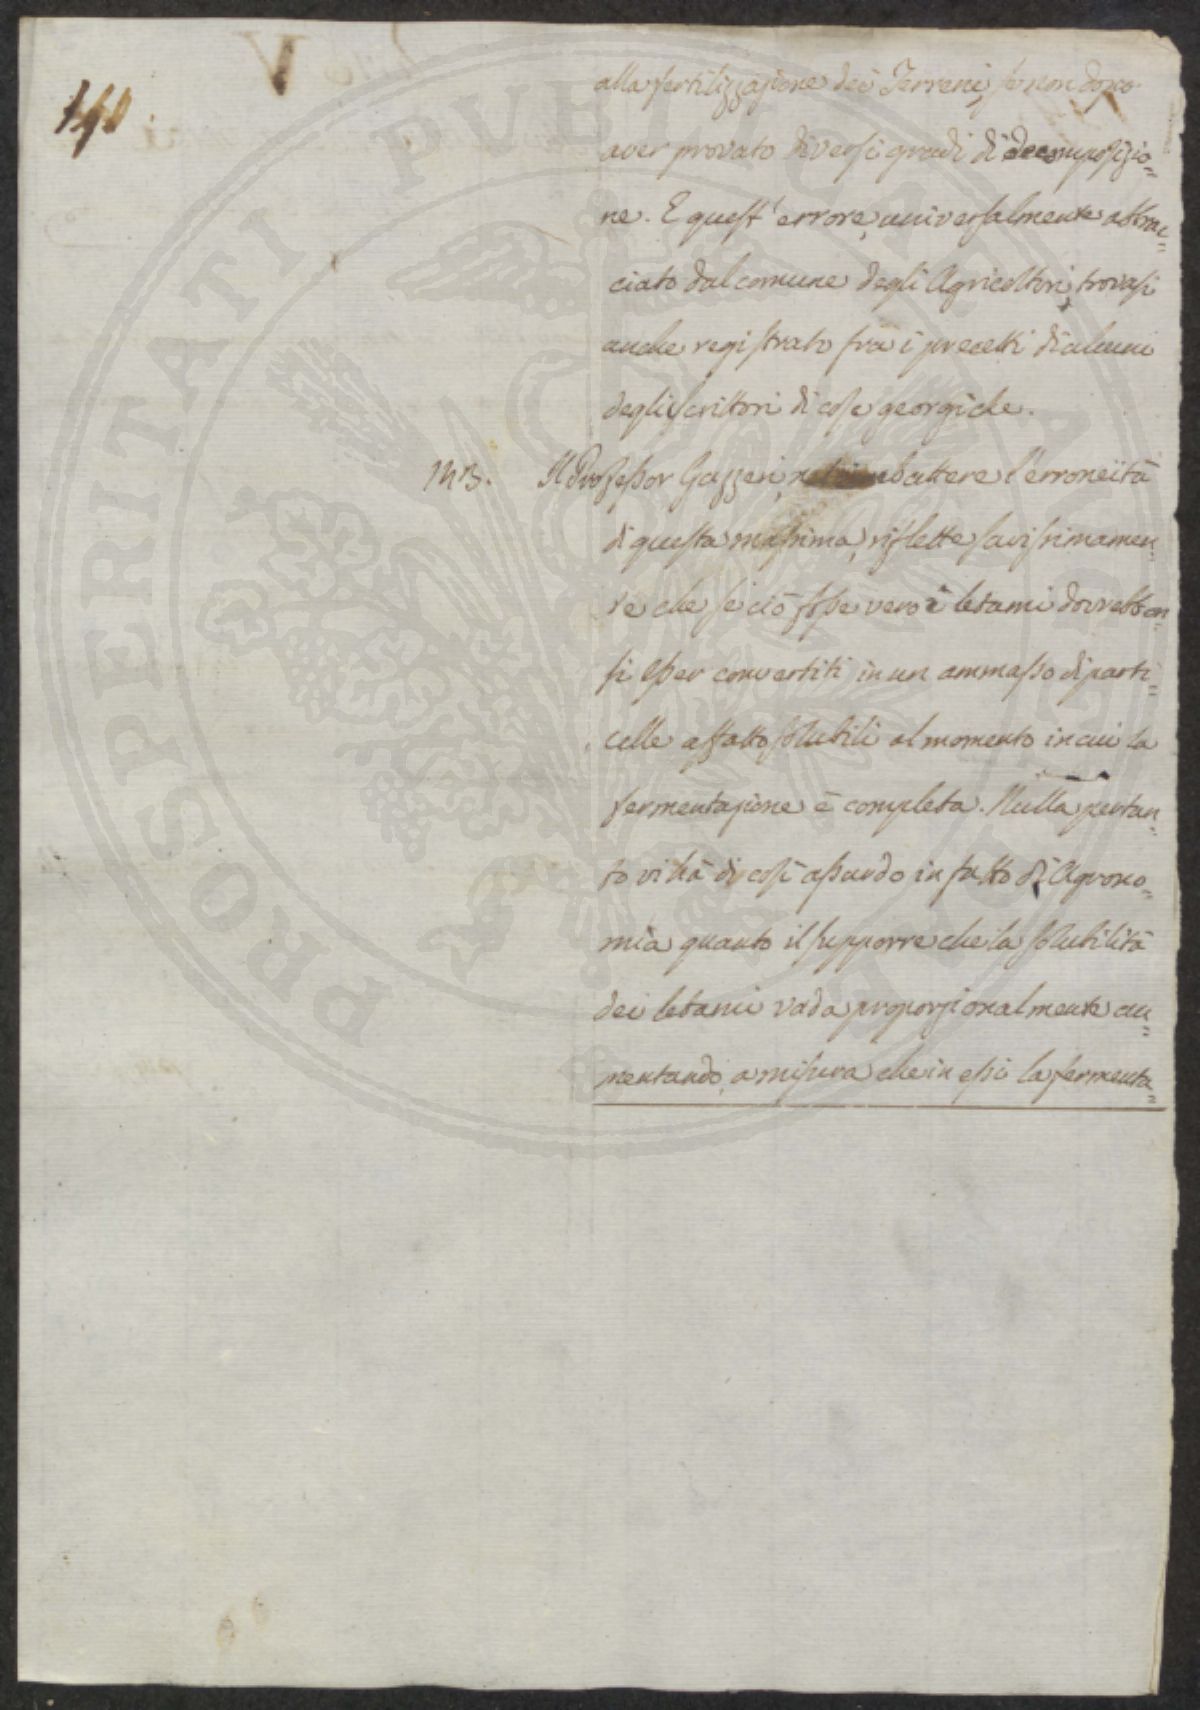 140.
alla fertilizzazione dei Terreni, se non dopo
aver provato diversi gradi di decomposizio=
ne. E quest' errore, universalmente abbrac=
ciato dal comune degli Agricoltori, trovasi
anche registrato fra i precetti di alcuni
degli scrittori di cose georgiche.
NB. Il Professor Gazzeri, nel ribattere l'erroneità
di questa massima, riflette savissimamen=
te che se ciò fosse vero i letami dovrebbon=
si esser convertiti in un ammasso di parti=
celle affatto solubili al momento in cui la
fermentazione è completa. Nulla pertan=
to vi hà di così assurdo in fatto di Agrono=
mia quanto il supporre che la solubilità
dei letami vada proporzionalmente au=
mentando, a misura che in essi la fermenta=
PROSPERITATI PUBLICAE AUGENDAE